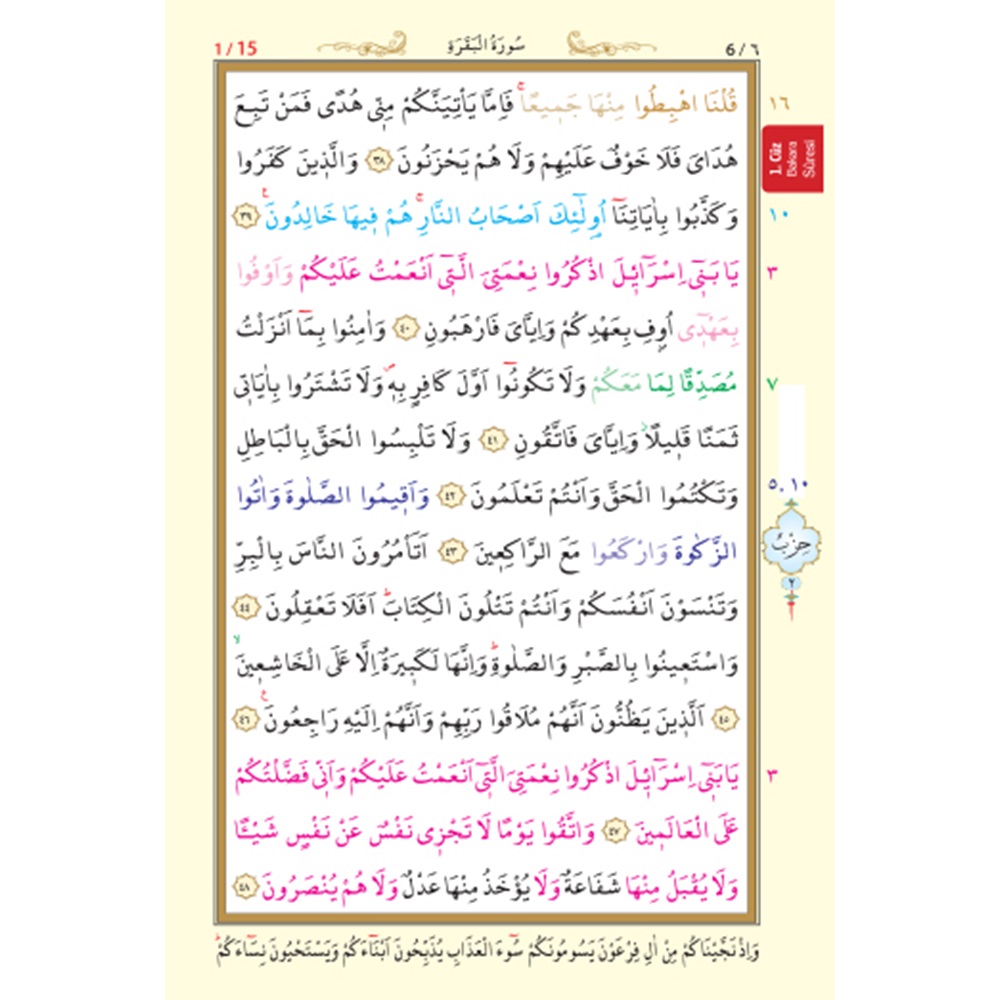 1 / 15
سُورَةُ الْبَقَرَةِ
6 / ٦
قُلْنَا اهْبِطُوا مِنْهَا جَمٖيعًاۚ فَاِمَّا يَأْتِيَنَّكُمْ مِنّٖى هُدًى فَمَنْ تَبِعَ
١٦
هُدَاىَ فَلَا خَوْفٌ عَلَيْهِمْ وَلَا هُمْ يَحْزَنُونَ ﴿٣٨﴾ وَالَّذٖينَ كَفَرُوا
1. Cüz
Bakara
Sûresi
وَكَذَّبُوا بِاٰيَاتِنَٓا اُو۬لٰٓئِكَ اَصْحَابُ النَّارِۚ هُمْ فٖيهَا خَالِدُونَۚ ﴿٣٩﴾
١٠
يَا بَنٖٓى اِسْرَٓائٖلَ اذْكُرُوا نِعْمَتِىَ الَّتٖٓى اَنْعَمْتُ عَلَيْكُمْ وَاَوْفُوا
٣
بِعَهْدٖٓى اُو۫فِ بِعَهْدِكُمْ وَاِيَّاىَ فَارْهَبُونِ ﴿٤٠﴾ وَاٰمِنُوا بِمَٓا اَنْزَلْتُ
مُصَدِّقًا لِمَا مَعَكُمْ وَلَا تَكُونُٓوا اَوَّلَ كَافِرٍ بِهٖۖ وَلَا تَشْتَرُوا بِاٰيَاتٖى
٧
ثَمَنًا قَلٖيلًاۘ وَاِيَّاىَ فَاتَّقُونِ ﴿٤١﴾ وَلَا تَلْبِسُوا الْحَقَّ بِالْبَاطِلِ
وَتَكْتُمُوا الْحَقَّ وَاَنْتُمْ تَعْلَمُونَ ﴿٤٢﴾ وَاَقٖيمُوا الصَّلٰوةَ وَاٰتُوا
٥،١٠
الزَّكٰوةَ وَارْكَعُوا مَعَ الرَّاكِعٖينَ ﴿٤٣﴾ اَتَأْمُرُونَ النَّاسَ بِالْبِرِّ
حِزْبٌ
٢
وَتَنْسَوْنَ اَنْفُسَكُمْ وَاَنْتُمْ تَتْلُونَ الْكِتَابَۜ اَفَلَا تَعْقِلُونَ ﴿٤٤﴾
وَاسْتَعٖينُوا بِالصَّبْرِ وَالصَّلٰوةِۜ وَاِنَّهَا لَكَبٖيرَةٌ اِلَّا عَلَى الْخَاشِعٖينَۙ
﴿٤٥﴾ اَلَّذٖينَ يَظُنُّونَ اَنَّهُمْ مُلَاقُوا رَبِّهِمْ وَاَنَّهُمْ اِلَيْهِ رَاجِعُونَۚ ﴿٤٦﴾
يَا بَنٖٓى اِسْرَٓائٖلَ اذْكُرُوا نِعْمَتِىَ الَّتٖٓى اَنْعَمْتُ عَلَيْكُمْ وَاَنّٖى فَضَّلْتُكُمْ
٣
عَلَى الْعَالَمٖينَ ﴿٤٧﴾ وَاتَّقُوا يَوْمًا لَا تَجْزٖى نَفْسٌ عَنْ نَفْسٍ شَيْـًٔا
وَلَا يُقْبَلُ مِنْهَا شَفَاعَةٌ وَلَا يُؤْخَذُ مِنْهَا عَدْلٌ وَلَا هُمْ يُنْصَرُونَ ﴿٤٨﴾
وَاِذْ نَجَّيْنَاكُمْ مِنْ اٰلِ فِرْعَوْنَ يَسُومُونَكُمْ سُٓوءَ الْعَذَابِ يُذَبِّحُونَ اَبْنَٓاءَكُمْ وَيَسْتَحْيُونَ نِسَٓاءَكُمْۜ